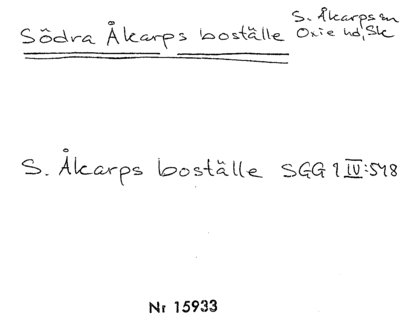 Södra Åkarps boställe
S. Åkarps sn
Oxie hd, Sk
S. Åkarps boställe SGG 1 IV:548
Nr 15933